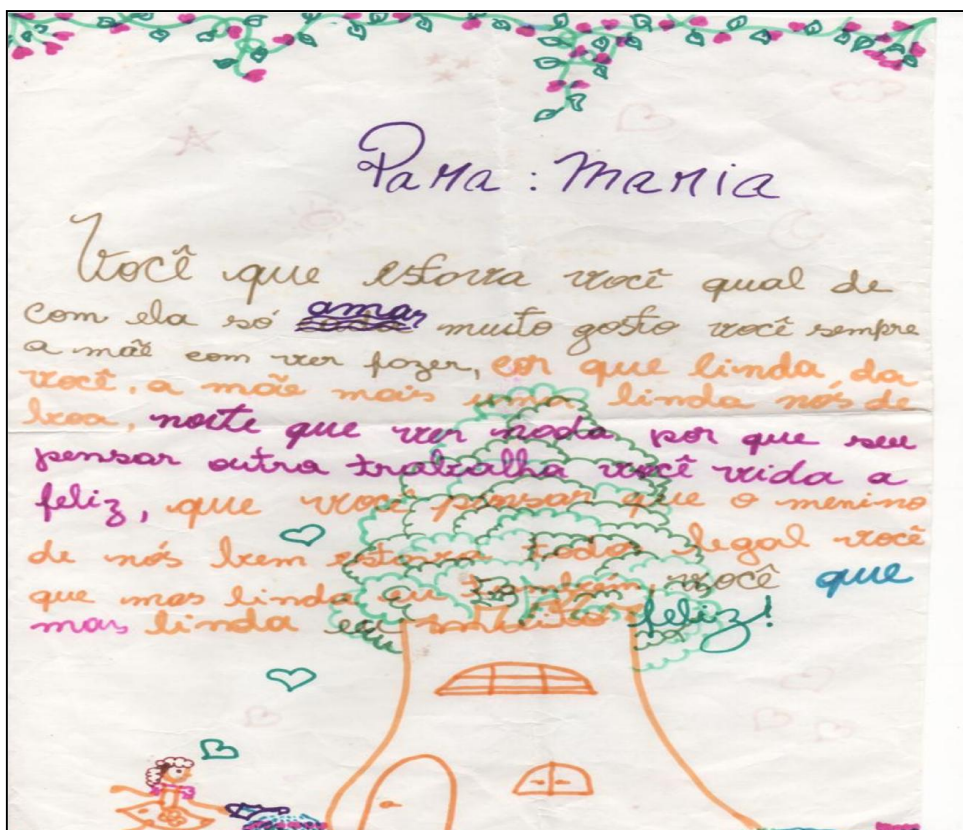 Para: Maria
Você que estova você qual de
com ela só amar muito gosto você sempre
a mãe com ver fozer, cor que linda, da
você, a mãe mais uma linda nós de
boa, noite que ver noda por que seu
pensar outra trabalha você vida a
feliz, que você pensar que o menino
de nós bem estova todos legal você
que mas linda eu também você que
mas linda eu muito feliz!